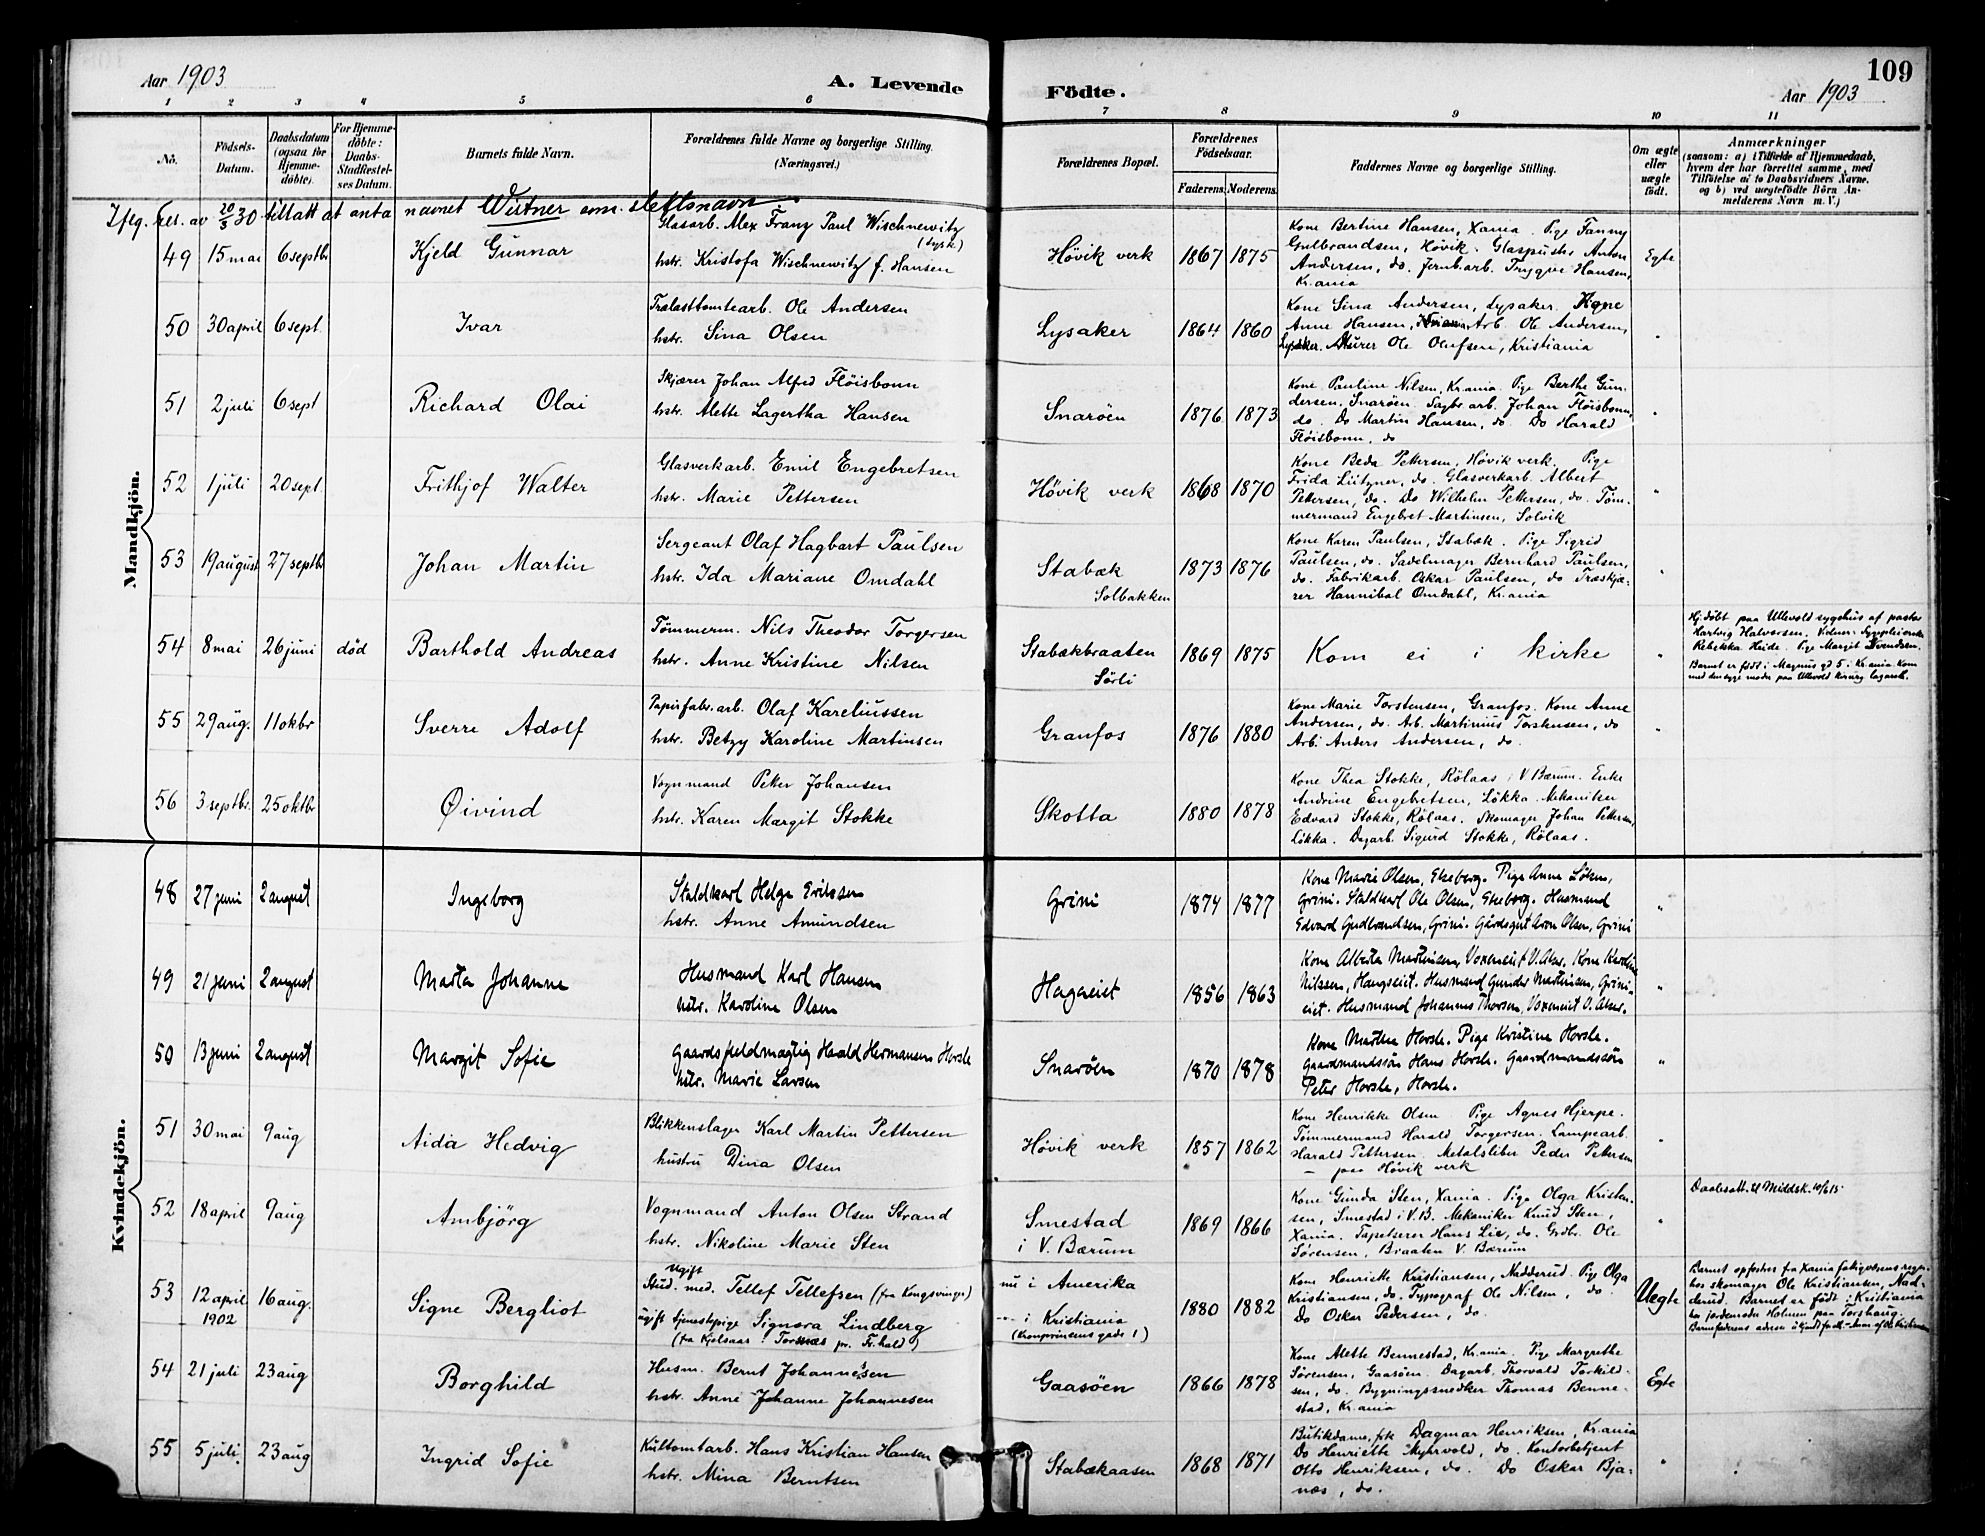 109
Aar 1903
A. Levende Födte.
Aar 1903
1 2 3 4 5 6 7 8 9 10 11
No.
Födsels-Datum.
Daabsdatum (ogsaa for Hjemme-döbte).
For Hjemme-döbte: Daabs-Stadfæstelses Datum.
Barnets fulde Navn.
Forældrenes fulde Navne og borgerlige Stilling. (Næringsvei.)
Forældrenes Bopæl.
Forældrenes Födselsaar.
Faderens. Moderens.
Faddernes Navne og borgerlige Stilling.
Om ægte eller uægte födt.
Anmærkninger
(saasom: a) i Tilfælde af Hjemmedaab, hvem der har forrettet samme, med Tilföielse af to Daabsvidners Navne, og b) ved uægtefödte Börn Anmelderens Navn m. V.)
Mandkjön.
Iflg. res. av 20/3 30 tillatt at anta navnet Wutner som slektsnavn.
49 15 mai 6 septbr Kjeld Gunnar
Glasarb. Alex Franz Paul Wischnewitz (tysk)
hstr. Kristofa Wischnewitz f. Hansen
Høvik verk 1867 1875
Kone Bertine Hansen, Xania. Pige Fanny
Gulbrandsen, Høvik. Glaspuster Anton
Andersen, do. Jernb.arb. Trygve Hansen,
Kr.ania
Egte
50 30 april 6 sept. Ivar
Trælasttomtearb. Ole Andersen
hstr. Sina Olsen
Lysaker 1864 1860
Kone Sina Andersen, Lysaker. Kone
Anne Hansen, Arb. Ole Andersen,
Lysaker. Murer Ole Olufsen, Kristiania
"
51 2 juli 6 sept Richard Olai
Skjærer Johan Alfred Fløisbonn
hstr. Alette Lagertha Hansen
Snarøen 1876 1873
Kone Pauline Nilsen, Kr.ania. Pige Berthe Gun-
dersen, Snarøen. Sagbr.arb. Johan Fløisbonn,
do. Do Martin Hansen, do. Do Harald
Fløisbonn, do
"
52 1 juli 20 sept. Frithjof Walter
Glasverkarb. Emil Engebretsen
hstr. Marie Pettersen
Høvik verk 1868 1870
Kone Beda Pettersen, Høvik verk. Pige
Frida Lützner, do. Glasverkarb. Albert
Pettersen, do. Do Wilhelm Pettersen, do. Tøm-
mermand Engebret Martinsen, Solvik
"
53 19 august 27 septbr Johan Martin
Sergeant Olaf Hagbart Paulsen
hstr. Ida Mariane Omdahl
Stabæk
Solbakken
1873 1876
Kone Karen Paulsen, Stabæk. Pige Sigrid
Paulsen, do. Sadelmager Bernhard Paulsen,
do. Fabrikarb. Oskar Paulsen, do Træskjæ-
rer Hannibal Omdahl, Kr.ania
"
54 8 mai 26 juni død Barthold Andreas
Tømmerm. Nils Theodor Torgersen
hstr. Anne Kristine Nilsen
Stabækbraaten
Sørli
1869 1875
Kom ei i kirke
"
Hj.døbt paa Ullevold sygehus af pastor
Hartvig Halvorsen. Vidner: Sygepleierske
Rebekka Heide. Pige Margit Svendsen.
Barnet er født i Magnus gd 5 i Kr.ania. Kom
med den syge moder paa Ullevold kirurg. lazareth.
55 29 aug. 11 okbr Sverre Adolf
Papirfabr.arb. Olaf Kareliussen
hstr. Betzy Karoline Martinsen
Granfos 1876 1880
Kone Marie Torstensen, Granfos. Kone Anne
Andersen, do. Arb. Martinius Torstensen, do
Arb. Anders Andersen, do.
"
56 3 septbr. 25 oktbr Øivind
Vognmand Peter Johansen
hstr. Karen Margit Stokke
Skotta 1880 1878
Kone Thea Stokke, Rölaas i V. Bærum. Enke
Andrine Engebretsen, Løkka. Mekaniker
Edvard Stokke, Rölaas. Skomager Johan Pettersen,
Løkka. Dagarb. Sigurd Stokke, Rölaas.
Kvindekjön.
48 27 juni 2 august Ingeborg
Staldkarl Helge Eriksen
hstr. Anne Amundsen
Grini 1874 1877
Kone Marie Olsen, Ekeberg. Pige Anne Löken,
Grini. Staldkarl Ole Olsen, Ekeberg. Husmand
Edvard Gudbrandsen, Grini. Gårdsgut Aron Olsen, Grini
"
49 21 juni 2 august Marta Johanne
Husmand Karl Hansen
hstr. Karoline Olsen
Hagaeiet 1856 1863
Kone Alberta Martinsen, Voxeneiet V. Aker. Kone Karoline
Nilssen, Haugseiet. Husmand Gunder Martinsen, Grini-
eiet. Husmand Johannes Thorsen, Voxeneiet V. Aker.
"
50 13 juni 2 august Margit Sofie
Gaardsfuldmægtig Harald Hermansen Horsle
hstr. Marie Larsen
Snarøen 1870 1878
Kone Marthea Horsle. Pige Kristine Horsle.
Gaardmandssön Hans Horsle. Gaardmandssön
Peter Horsle, Horsle.
"
51 30 mai 9 aug Aida Hedvig
Blikkenslager Karl Martin Pettersen
hustru Dina Olsen
Høvik verk 1857 1862
Kone Henrikke Olsen Pige Agnes Hjerpe.
Tømmermand Harald Torgersen. Lampearb.
Harald Pettersen. Metalsliber Peder Pettersen
— paa Høvik verk
"
52 18 april 9 aug Ambjörg
Vognmand Anton Olsen Strand
hstr. Nikoline Marie Sten
Smestad
i V. Bærum
1869 1866
Kone Gunda Sten, Xania. Pige Olga Kristian-
sen, Smestad i V.B. Mekaniker Knud Sten,
Xania. Tapetserer Hans Lie, do. Grdbr. Ole
Sørensen, Braaten V. Bærum
"
Daabsatt. til Middsk. 10/6 15
53 12 april 1902 16 aug. Signe Bergliot
Ugift
Stud. med. Tellef Tellefsen (fra Kongsvinger)
ugift tjenestepige Signora Lindberg
(fra Kjølsaar i Torsnæs pr. Fr.hald)
nu i Amerika
i Kristiania
(Kronprinsens gade 1)
1880 1882
Kone Henriette Kristiansen, Nadderud. Pige Olga
Kristiansen, do. Typograf Ole Nilsen, do.
Do Oskar Pedersen, do.
Uegte
Barnet opfostres fra Xania fatigvæsens regn.
hos skomager Ole Kristiansen, Nad-
derud. Barnet er født i Kristiania
hos jordemoder Holmen paa Torshaug.
54 21 juli 23 aug Borghild
Husm. Bernt Johannesen
hstr. Anne Johanne Johannesen
Gaasøen 1866 1878
Kone Alette Bennestad, Kr.ania. Pige Margrethe
Sørensen, Gaasøen. Dagarb. Thorvald Torkild-
sen, do. Bygningssnedker Thomas Benne-
stad, Kr.ania
Egte
55 5 juli 23 aug Ingrid Sofie
Kultomtarb. Hans Kristian Hansen
hstr. Mina Berntsen
Stabækaasen 1868 1871
Butikdame, frk Dagmar Henriksen, Kr.ania
Do Henriette Myhrvold, do. Kontorbetjent
Otto Henriksen, do. Do Oskar Bja-
næs, do.
"